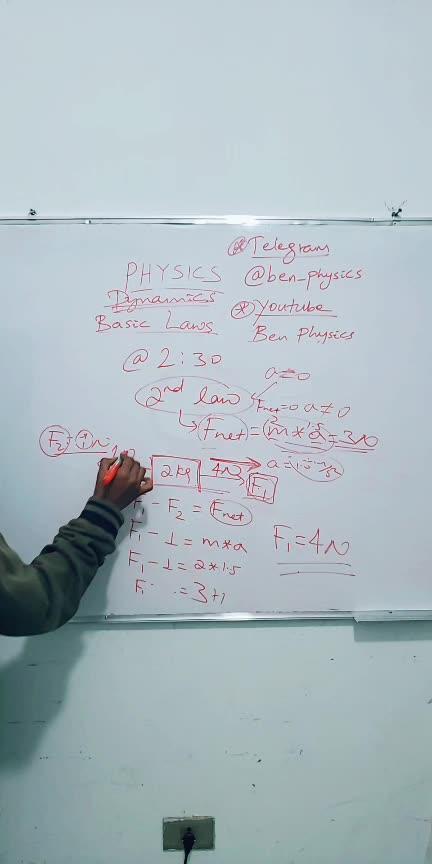 PHYSICS
Dynamics
Basic Laws
@ 2:30
* Telegram
@ben_physics
* Youtube
Ben Physics
2nd law
a≠0
Fnet=0 a≠0
Fnet = m*a = 3N
2 1.5
F2 = 1N
2kg
4N
F1
a = 1.5 m/s²
F1 - F2 = Fnet
F1 - 1 = m*a
F1 - 1 = 2*1.5
F1 = 3+1
F1 = 4N